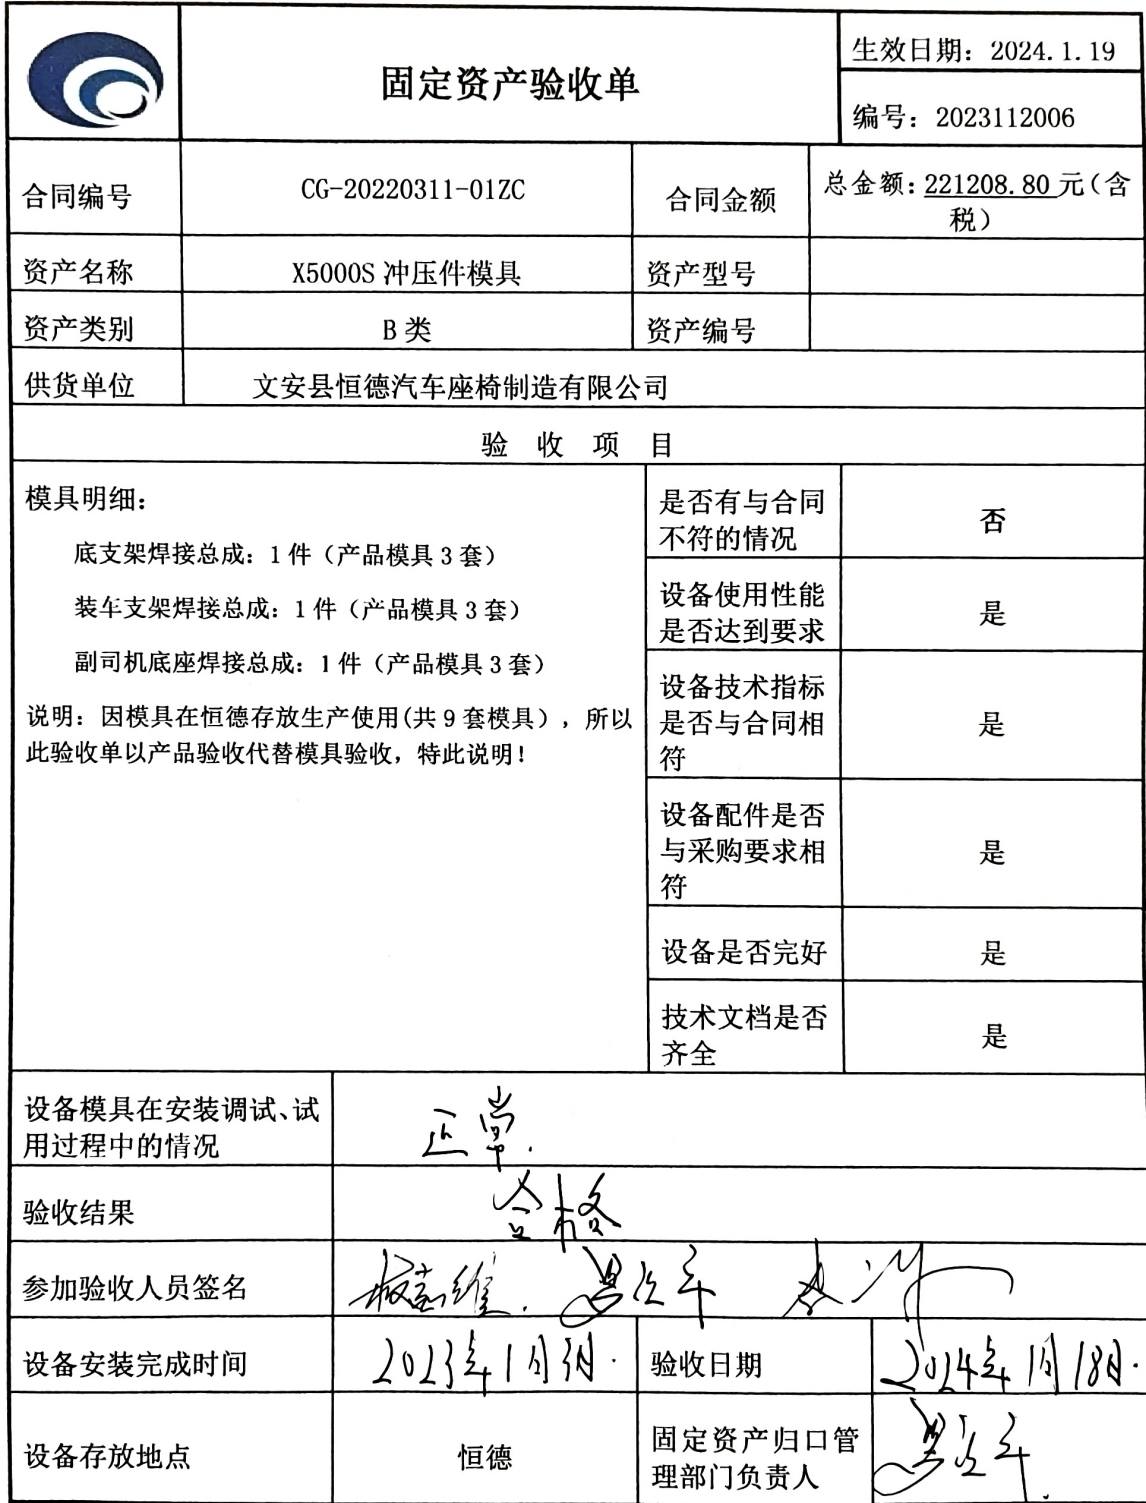 固定资产验收单
生效日期：2024.1.19
编号：2023112006
合同编号
CG-20220311-01ZC
合同金额
总金额：221208.80 元（含
税）
资产名称
X5000S 冲压件模具
资产型号
资产类别
B 类
资产编号
供货单位
文安县恒德汽车座椅制造有限公司
验 收 项 目
模具明细：
底支架焊接总成：1 件（产品模具 3 套）
装车支架焊接总成：1 件（产品模具 3 套）
副司机底座焊接总成：1 件（产品模具 3 套）
说明：因模具在恒德存放生产使用(共 9 套模具），所以
此验收单以产品验收代替模具验收，特此说明！
是否有与合同
不符的情况
否
设备使用性能
是否达到要求
是
设备技术指标
是否与合同相
符
是
设备配件是否
与采购要求相
符
是
设备是否完好
是
技术文档是否
齐全
是
设备模具在安装调试、试
用过程中的情况
正常.
验收结果
合格
参加验收人员签名
设备安装完成时间
2023年1月
验收日期
2024年1月18日.
设备存放地点
恒德
固定资产归口管
理部门负责人